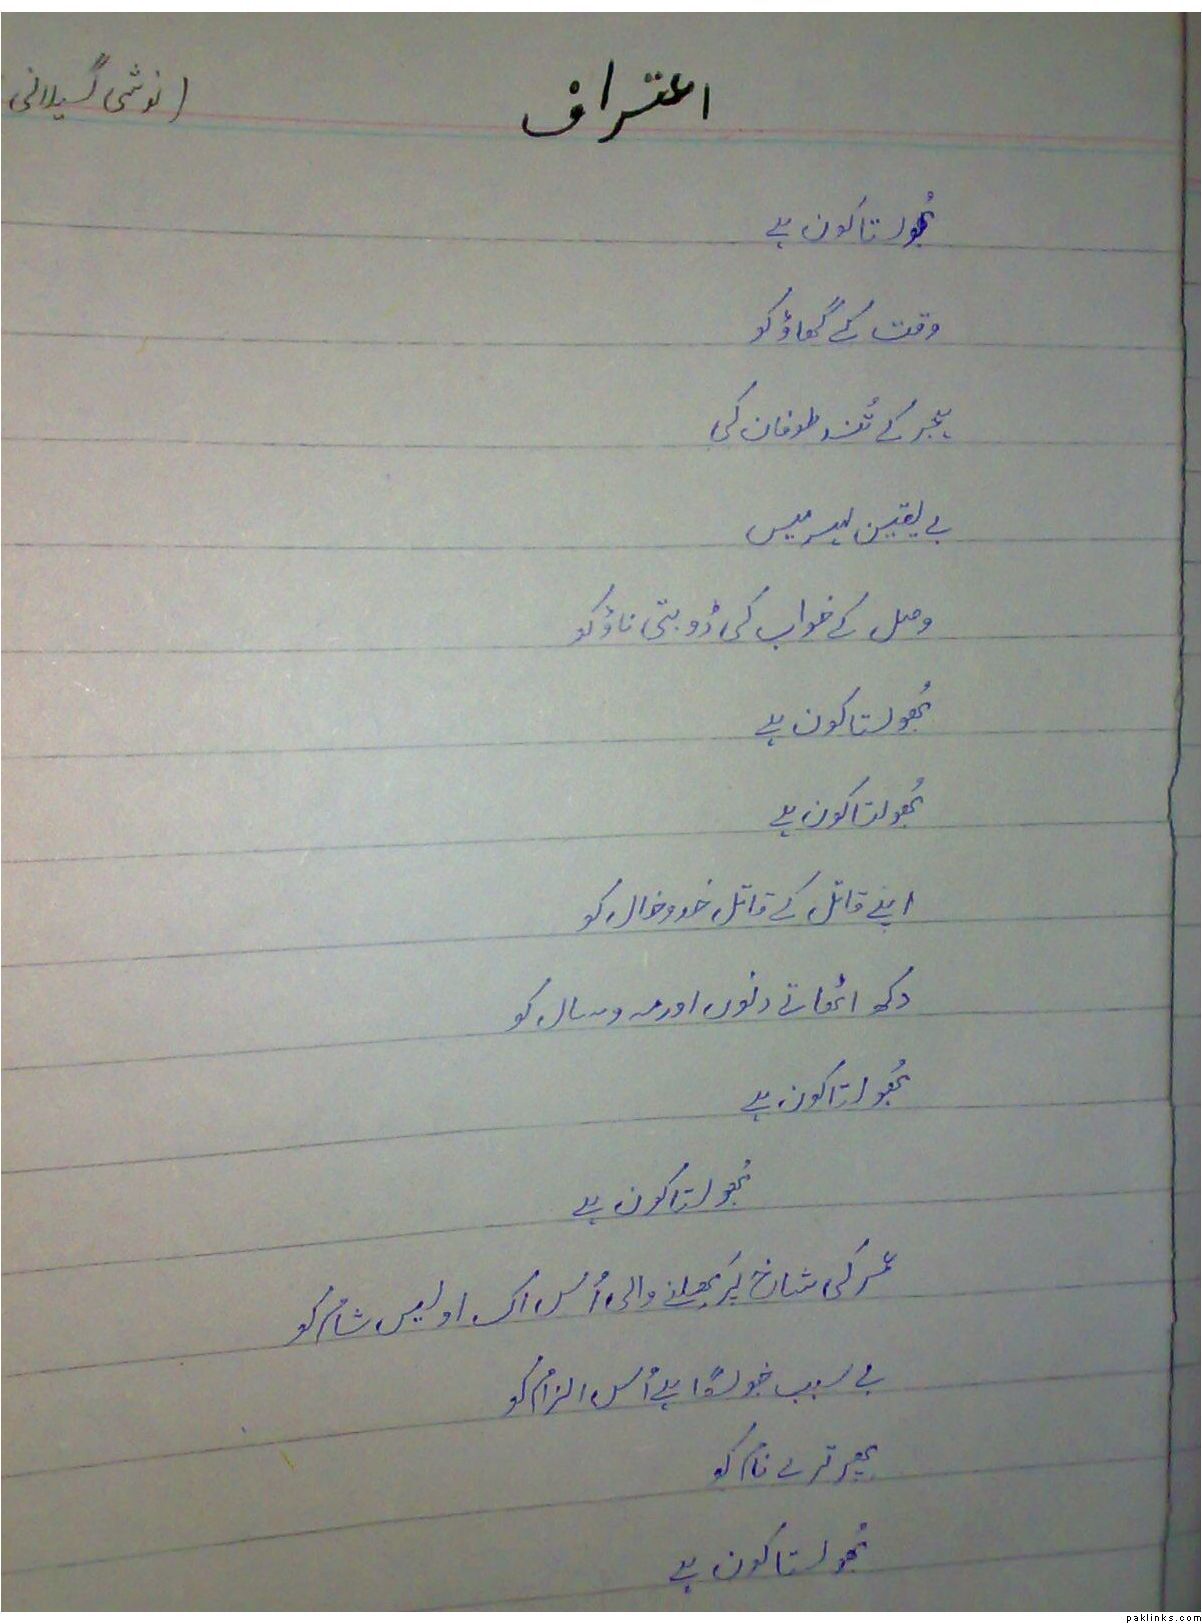 اعتراف
(نوشی گیلانی
بُھولتا کون ہے
وقت کے گھاؤ کو
ہجر کے تُند طوفان کی
بے یقین لہر میں
وصل کے خواب کی ڈوبتی ناؤ کو
بُھولتا کون ہے
بُھولتا کون ہے
اپنے قاتل کے قاتل خدوخال کو
دکھ اٹھاتے دنوں اور مہ و سال کو
بُھولتا کون ہے
بُھولتا کون ہے
عمر کی شاخ پر کھلنے والی اُس اک اولیں شام کو
بے سبب جو لگا ہے اُس الزام کو
پھر ترے نام کو
بُھولتا کون ہے
paklinks.com